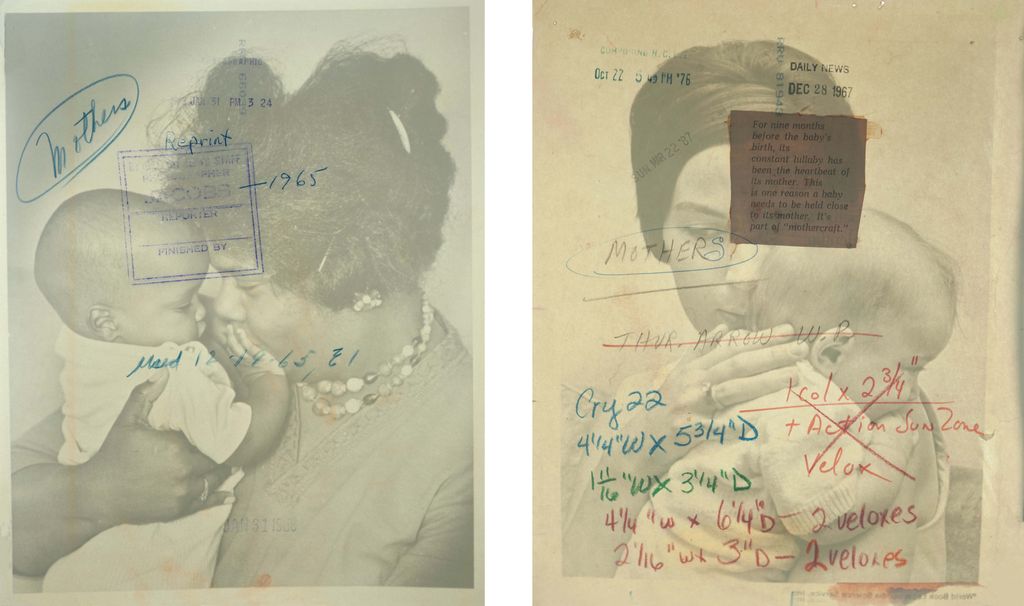 Mothers
JAN 31 PM 3 24
Reprint
1965
REPORTER
FINISHED BY
Used 12-14-65, E1
JAN 31
COMPOSING
OCT 22 5 49 PM '76
DAILY NEWS
DEC 28 1967
SUN MAR 22 '87
For nine months
before the baby's
birth, its
constant lullaby has
been the heartbeat of
its mother. This
is one reason a baby
needs to be held close
to its mother. It's
part of "mothercraft."
MOTHERS
THUR. ARROW W.P.
1 col x 2 3/4"
+ Action Sun Zone
Velox
Cry 22
4 1/4"W x 5 3/4"D
1 11/16"W x 3 1/4"D
4 1/4"W x 6 1/4"D — 2 veloxes
2 1/16"Wx 3"D — 2 veloxes